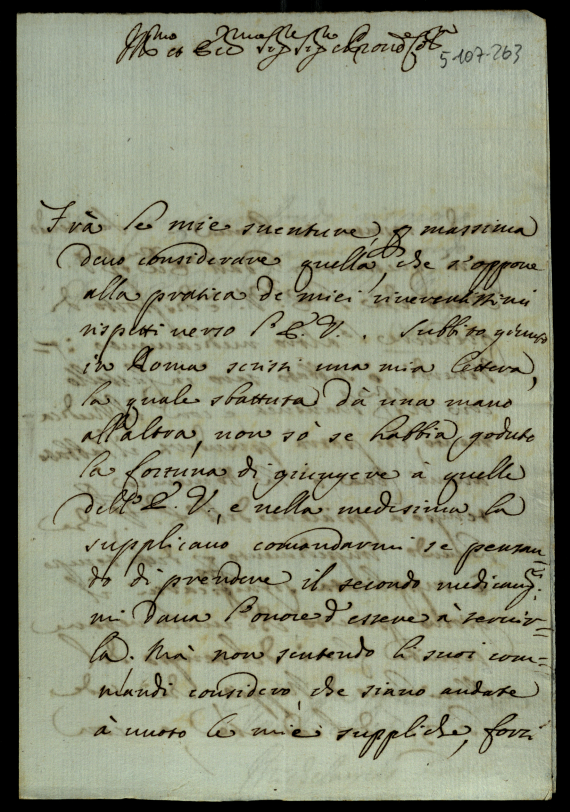 Ill.mo et Ecc.mo Sig.r Sig.r e Pron Col.mo
5-107-263
Frà le mie suenture p massima
deuo considerare quella, che s'oppone
alla pratica de miei riuerentissimi
rispetti uerso l'E. V. . Subbito giunto
in Roma scrissi una mia lettera,
la quale sbattuta dà una mano
all'altra, non sò se habbia goduto
la fortuna di giungere à quelle
dell'E. V., e nella medesima la
supplicauo comandarmi se pensan=
do di prendere il secondo
mi daua l'onore d'essere à seruir=
la. Mà non sentendo li suoi com=
mandi considero, che siano andate
à uuoto le mie suppliche, forzi